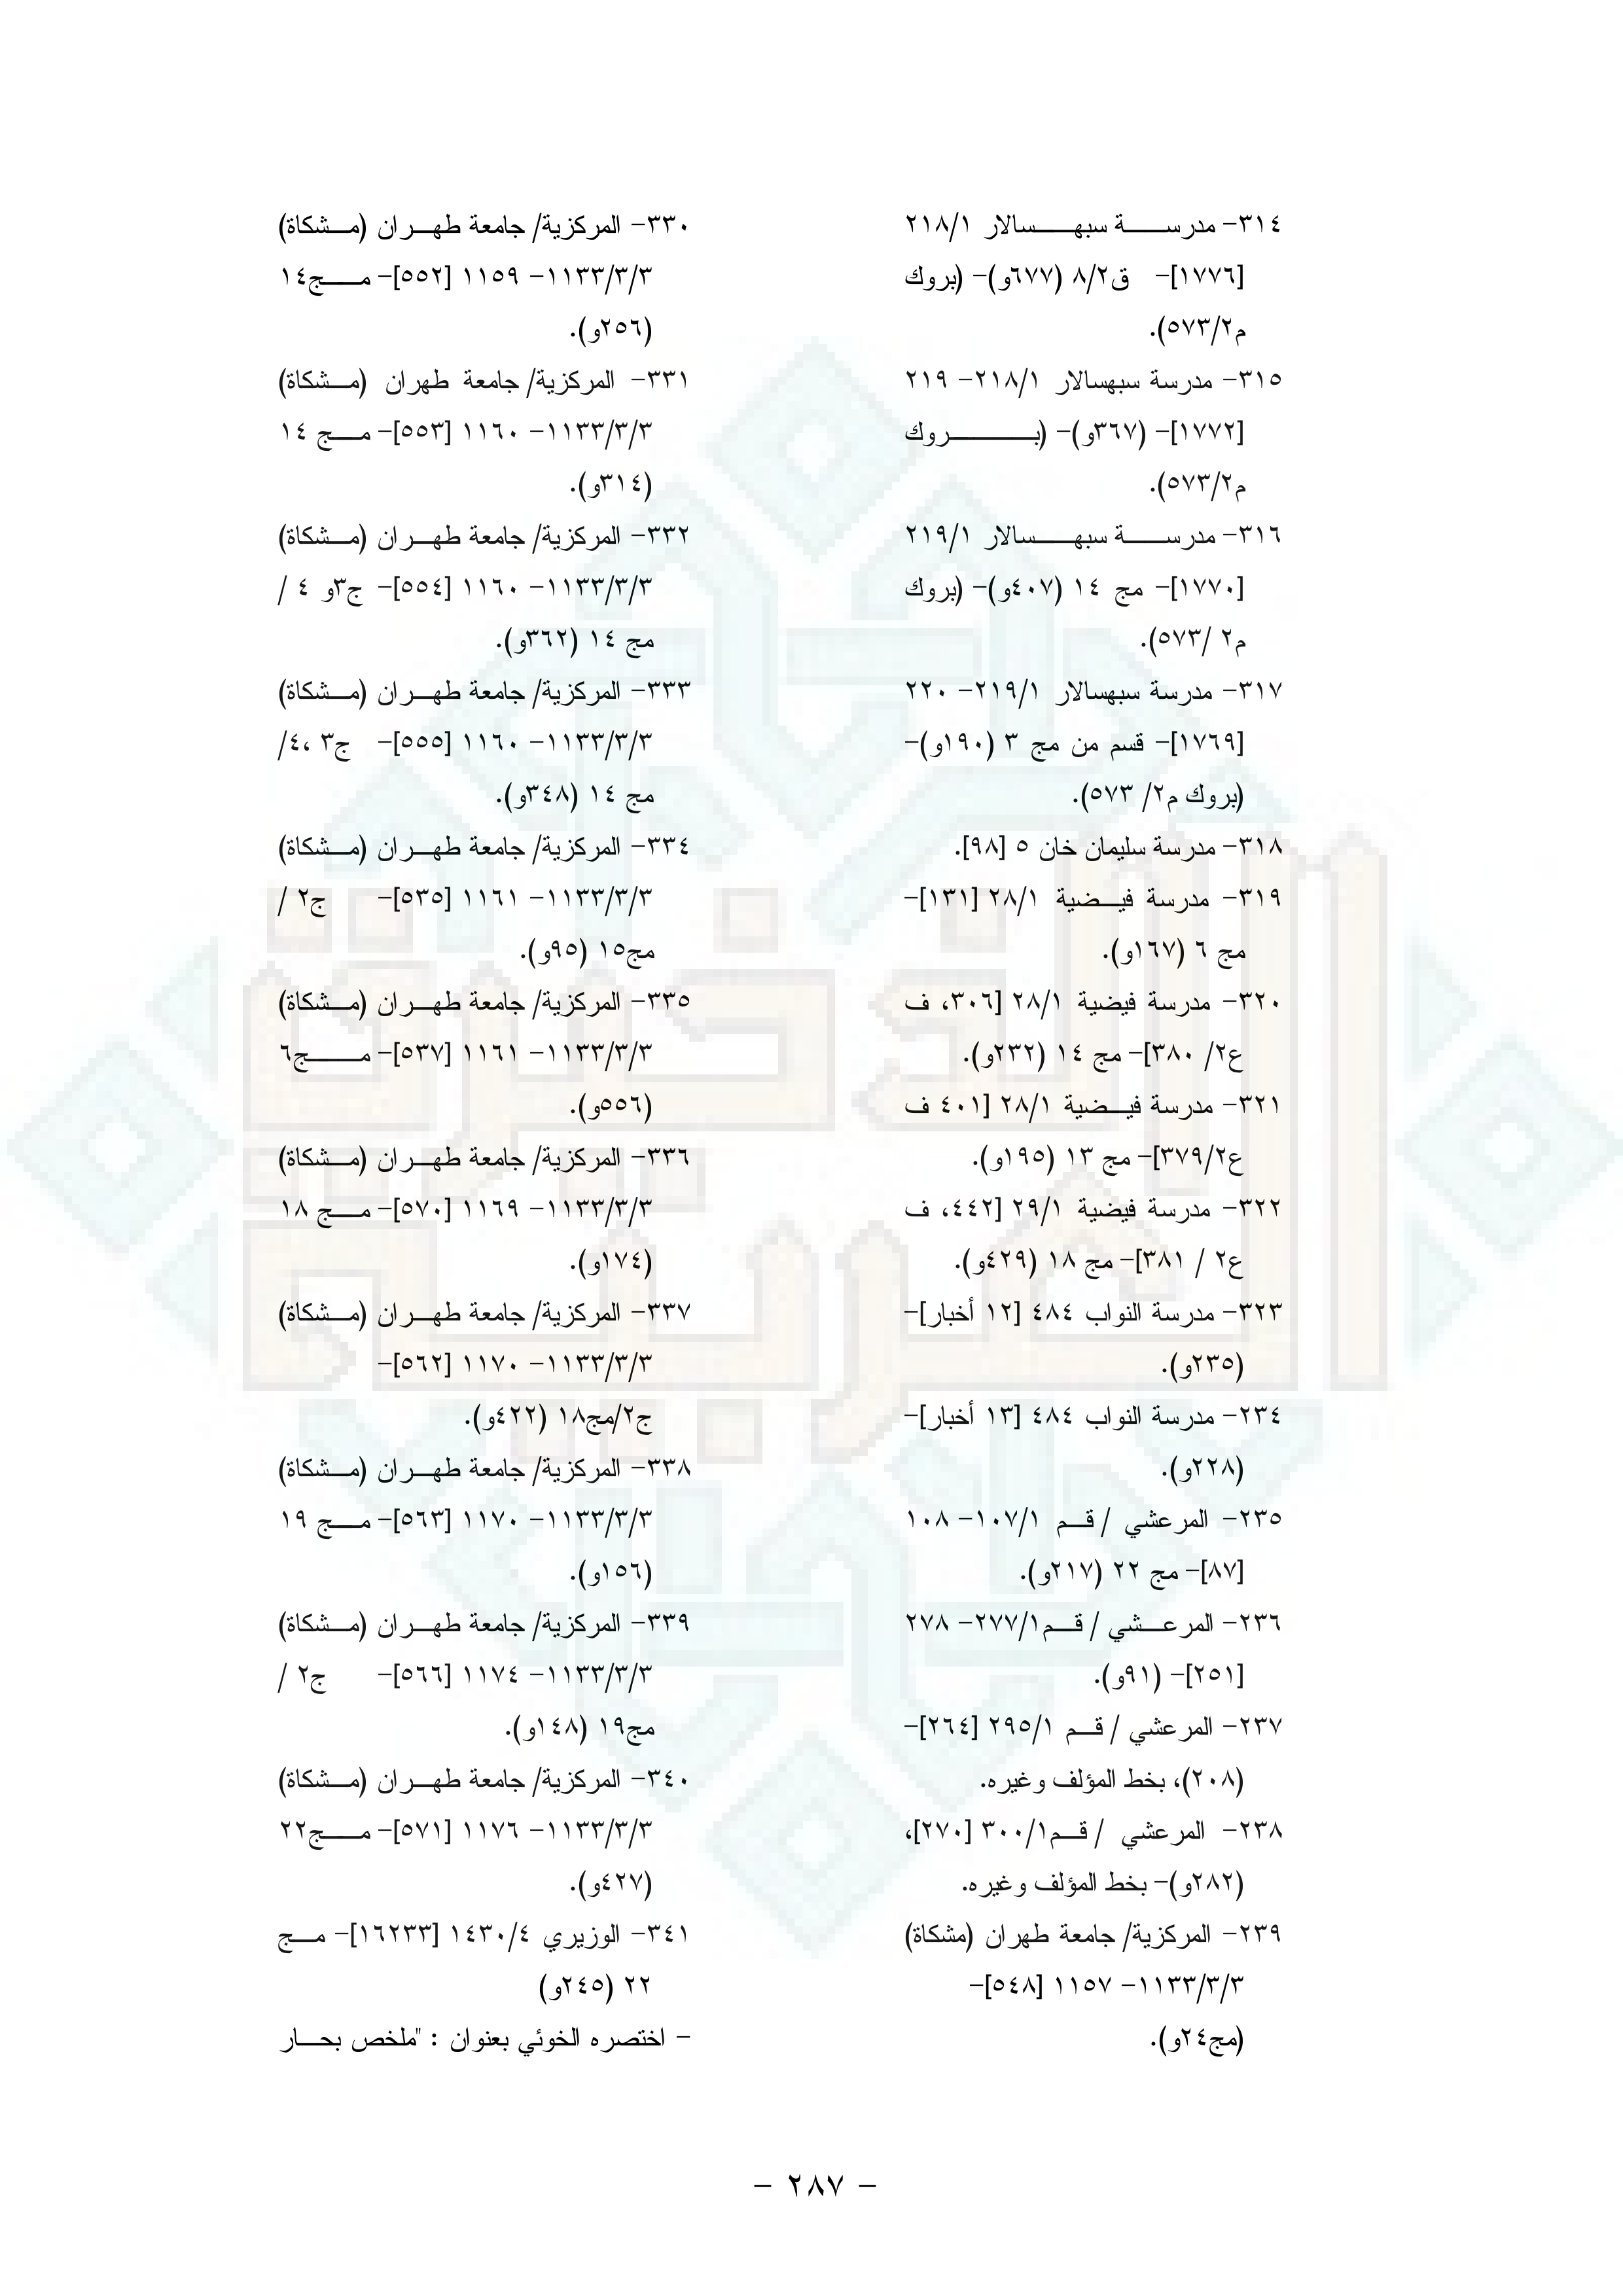 ٣١٤- مدرسة سبهسالار ٢١٨/١
[١٧٧٦]- ق٨/٢ (٦٧٧و)- (بروك
م٥٧٣/٢).
٣١٥- مدرسة سبهسالار ٢١٨/١- ٢١٩
[١٧٧٢]- (٣٦٧و)- (بروك
م٥٧٣/٢).
٣١٦- مدرسة سبهسالار ٢١٩/١
[١٧٧٠]- مج ١٤ (٤٠٧و)- (بروك
م٢ /٥٧٣).
٣١٧- مدرسة سبهسالار ٢١٩/١- ٢٢٠
[١٧٦٩]- قسم من مج ٣ (١٩٠و)-
(بروك م٢/ ٥٧٣).
٣١٨- مدرسة سليمان خان ٥ [٩٨].
٣١٩- مدرسة فيضية ٢٨/١ [١٣١]-
مج ٦ (١٦٧و).
٣٢٠- مدرسة فيضية ٢٨/١ [٣٠٦، ف
ع٢/ ٣٨٠]- مج ١٤ (٢٣٢و).
٣٢١- مدرسة فيضية ٢٨/١ [٤٠١ ف
ع٣٧٩/٢]- مج ١٣ (١٩٥و).
٣٢٢- مدرسة فيضية ٢٩/١ [٤٤٢، ف
ع٢ / ٣٨١]- مج ١٨ (٤٢٩و).
٣٢٣- مدرسة النواب ٤٨٤ [١٢ أخبار]-
(٢٣٥و).
٢٣٤- مدرسة النواب ٤٨٤ [١٣ أخبار]-
(٢٢٨و).
٢٣٥- المرعشي / قم ١٠٧/١- ١٠٨
[٨٧]- مج ٢٢ (٢١٧و).
٢٣٦- المرعشي / قم٢٧٧/١- ٢٧٨
[٢٥١]- (٩١و).
٢٣٧- المرعشي / قم ٢٩٥/١ [٢٦٤]-
(٢٠٨)، بخط المؤلف وغيره.
٢٣٨- المرعشي / قم٣٠٠/١ [٢٧٠]،
(٢٨٢و)- بخط المؤلف وغيره.
٢٣٩- المركزية/ جامعة طهران (مشكاة)
١١٣٣/٣/٣- ١١٥٧ [٥٤٨]-
(مج٢٤و).
٣٣٠- المركزية/ جامعة طهران (مشكاة)
١١٣٣/٣/٣- ١١٥٩ [٥٥٢]- مج١٤
(٢٥٦و).
٣٣١- المركزية/ جامعة طهران (مشكاة)
١١٣٣/٣/٣- ١١٦٠ [٥٥٣]- مج ١٤
(٣١٤و).
٣٣٢- المركزية/ جامعة طهران (مشكاة)
١١٣٣/٣/٣- ١١٦٠ [٥٥٤]- ج٣و ٤ /
مج ١٤ (٣٦٢و).
٣٣٣- المركزية/ جامعة طهران (مشكاة)
١١٣٣/٣/٣- ١١٦٠ [٥٥٥]- ج٣ ،٤/
مج ١٤ (٣٤٨و).
٣٣٤- المركزية/ جامعة طهران (مشكاة)
١١٣٣/٣/٣- ١١٦١ [٥٣٥]- ج٢ /
مج١٥ (٩٥و).
٣٣٥- المركزية/ جامعة طهران (مشكاة)
١١٣٣/٣/٣- ١١٦١ [٥٣٧]- مج٦
(٥٥٦و).
٣٣٦- المركزية/ جامعة طهران (مشكاة)
١١٣٣/٣/٣- ١١٦٩ [٥٧٠]- مج ١٨
(١٧٤و).
٣٣٧- المركزية/ جامعة طهران (مشكاة)
١١٣٣/٣/٣- ١١٧٠ [٥٦٢]-
ج٢/مج١٨ (٤٢٢و).
٣٣٨- المركزية/ جامعة طهران (مشكاة)
١١٣٣/٣/٣- ١١٧٠ [٥٦٣]- مج ١٩
(١٥٦و).
٣٣٩- المركزية/ جامعة طهران (مشكاة)
١١٣٣/٣/٣- ١١٧٤ [٥٦٦]- ج٢ /
مج١٩ (١٤٨و).
٣٤٠- المركزية/ جامعة طهران (مشكاة)
١١٣٣/٣/٣- ١١٧٦ [٥٧١]- مج٢٢
(٤٢٧و).
٣٤١- الوزيري ١٤٣٠/٤ [١٦٢٣٣]- مج
٢٢ (٢٤٥و)
- اختصره الخوئي بعنوان : "ملخص بحار
- ٢٨٧ -